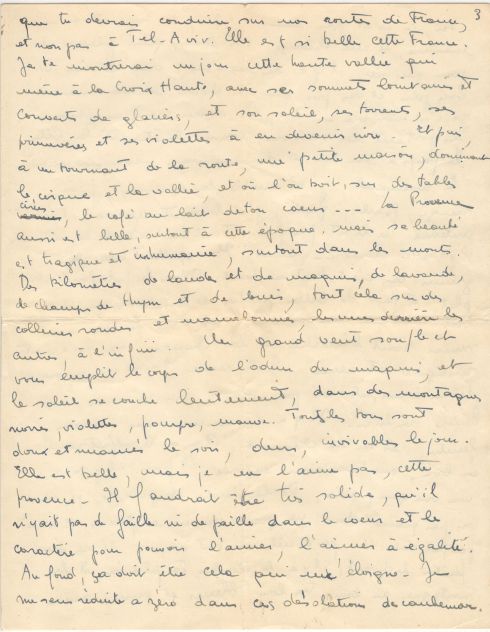 3
que tu devrais conduire sur nos routes de France,
et non pas à Tel-Aviv. Elle est si belle cette France.
Je te montrerai un jour cette haute vallée qui
mène à la Croix Haute, avec ses sommets lointains et
couverts de glaciers, et son soleil, ses torrents, ses
primevères et ses violettes à en devenir ivre. Et puis,
à un tournant de la route, une petite maison, dominant
le cirque et la vallée, et où l'on boit, sur des tables
cirées, le café au lait de ton coeur --- La Provence
aussi est belle, surtout à cette époque, mais sa beauté
est tragique et inhumaine, surtout dans les monts.
Des kilomètres de landes et de maquis, de lavande,
de champs de thym et de buis, tout cela sur des
collines rondes et mamelonnées, les unes derrière les
autres, à l'infini. Un grand vent souffle et
vous emplit le corps de l'odeur du maquis, et
le soleil se couche lentement, dans des montagnes
noires, violettes, pourpre, mauve. Tous les tons sont
doux et nuancés le soir, durs, invivables le jour.
Elle est belle, mais je ne l'aime pas, cette
provence - Il faudrait être très solide, qu'il
n'y ait pas de faille ni de paille dans le coeur et le
caractère pour pouvoir l'aimer, l'aimer à égalité.
Au fond, ça doit être cela qui m'éloigne - Je
me sens réduite a zéro dans ces désolations de cauchemar.